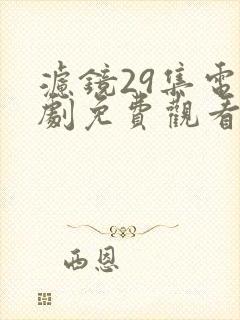 濾鏡29集電
劇免費觀看
西恩